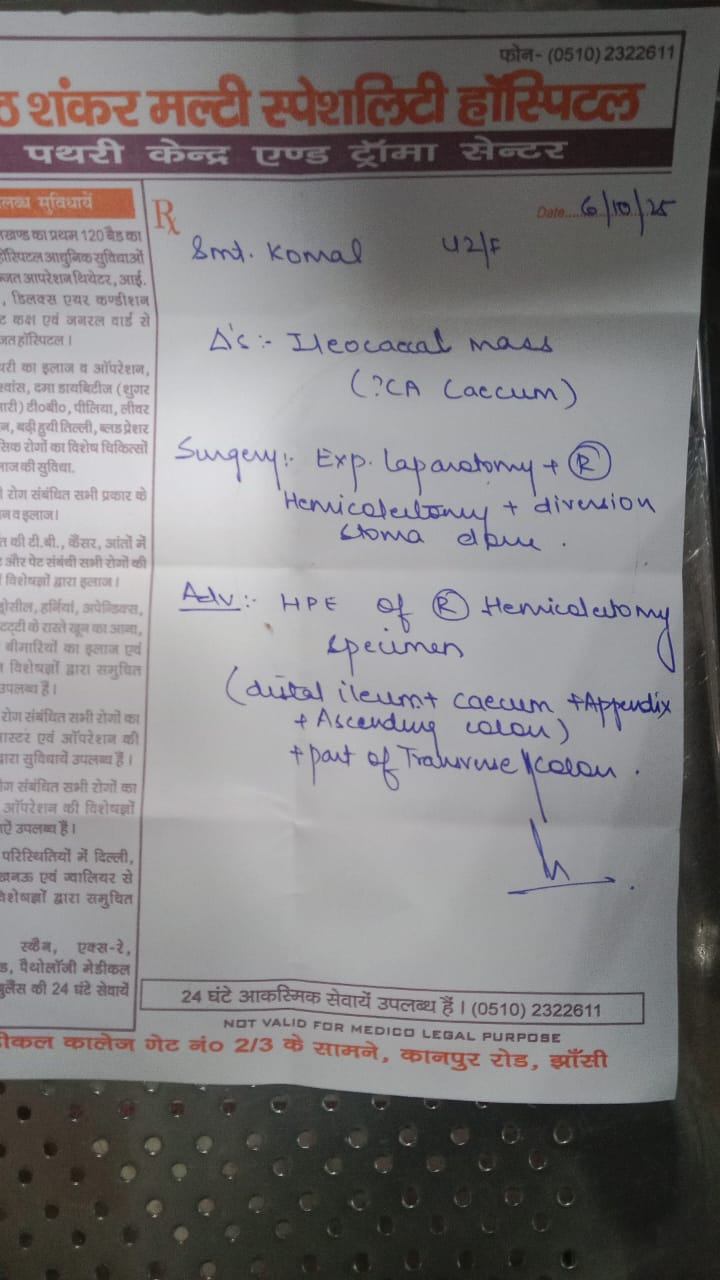 फोन- (0510) 2322611
ठ शंकर मल्टी स्पेशलिटी हॉस्पिटल
पथरी केन्द्र एण्ड ट्रॉमा सेन्टर
Rx
Date....6/10/25
Smt. Komal 42/F
Δis:- Ileocaecal mass
(?CA Caecum)
Surgery:- Exp. Laparotomy + (R)
Hemicolectomy + diversion
stoma done.
Adv:- HPE of (R) Hemicolectomy
specimen
(distal ileum + caecum + Appendix
+ Ascending colon)
+ part of Transverse colon.
लब्ध सुविधायें
खण्ड का प्रथम 120 बैड का
हॉस्पिटल आधुनिक सुविधाओं
ज्जत आपरेशन थियेटर, आई.
, डिलक्स एयर कण्डीशन
ट कक्ष एवं जनरल वार्ड से
जत हॉस्पिटल।
री का इलाज व ऑपरेशन,
श्वांस, दमा डायबिटीज (शुगर
ारी) टी०बी०, पीलिया, लीवर
न, बढ़ी हुयी तिल्ली, ब्लड प्रेशर
सिक रोगों का विशेष चिकित्सों
लाज की सुविधा.
रोग संबंधित सभी प्रकार के
न व इलाज।
त की टी.बी., कैंसर, आंतों में
और पेट संबंधी सभी रोगों की
विशेषज्ञों द्वारा इलाज।
ड्रोसील, हर्निया, अपेन्डिक्स,
टट्टी के रास्ते खून का आना,
बीमारियों का इलाज एवं
विशेषज्ञों द्वारा समुचित
उपलब्ध है।
रोग संबंधित सभी रोगों का
लास्टर एवं ऑपरेशन की
द्वारा सुविधायें उपलब्ध है।
ोग संबंधित सभी रोगों का
ऑपरेशन की विशेषज्ञों
ऐं उपलब्ध हैं।
परिस्थितियों में दिल्ली,
खनऊ एवं ग्वालियर से
विशेषज्ञों द्वारा समुचित
स्कैन, एक्स-रे,
ड, पैथोलॉजी मेडीकल
बुलैंस की 24 घंटे सेवायें
24 घंटे आकस्मिक सेवायें उपलब्ध हैं। (0510) 2322611
NOT VALID FOR MEDICO LEGAL PURPOSE
डीकल कालेज गेट नं० 2/3 के सामने, कानपुर रोड, झाँसी